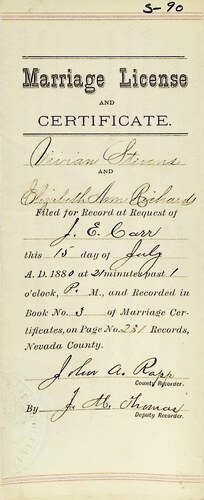 S-90
Marriage License
AND
CERTIFICATE.
Vivian Stevens
AND
Elizabeth Ann Richards
Filed for Record at Request of
J. E. Carr
this 15 day of July
A. D. 1880 at 21 minutes past 1
o'clock, P. M., and Recorded in
Book No. 3 of Marriage Cer-
tificates, on Page No. 231 Records,
Nevada County.
John A. Rapp
County Recorder.
By J. M. Thomas
Deputy Recorder.